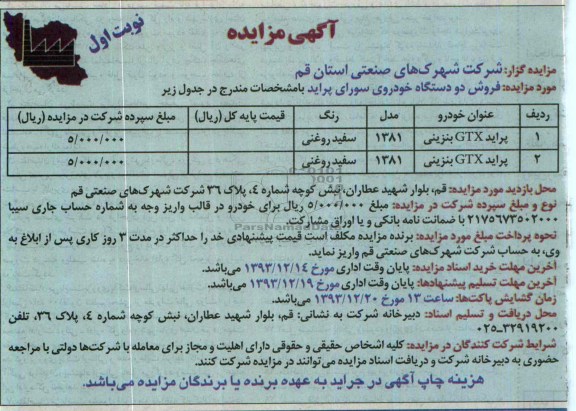 نوبت اول
آگهی مزایده
مزایده گزار: شرکت شهرک‌های صنعتی استان قم
مورد مزایده: فروش دو دستگاه خودروی سورای پراید بامشخصات مندرج در جدول زیر
ردیف عنوان خودرو مدل رنگ قیمت پایه کل (ریال) مبلغ سپرده شرکت در مزایده (ریال)
۱ پراید GTX بنزینی ۱۳۸۱ سفیدروغنی ۵/۰۰۰/۰۰۰
۲ پراید GTX بنزینی ۱۳۸۱ سفیدروغنی ۵/۰۰۰/۰۰۰
محل بازدید مورد مزایده: قم، بلوار شهید عطاران، نبش کوچه شماره ٤، پلاک ۳۶ شرکت شهرک‌های صنعتی قم
نوع و مبلغ سپرده شرکت در مزایده: مبلغ ۵/۰۰۰/۰۰۰ ریال برای خودرو در قالب واریز وجه به شماره حساب جاری سیبا
۲۱۷۵۶۷۳۵۰۲۰۰۰ با ضمانت نامه بانکی و یا اوراق مشارکت.
ParsNamadData
نحوه پرداخت مبلغ مورد مزایده: برنده مزایده مکلف است قیمت پیشنهادی خد را حداکثر در مدت ۳ روز کاری پس از ابلاغ به
وی، به حساب شرکت شهرک‌های صنعتی قم واریز نماید.
آخرین مهلت خرید اسناد مزایده: پایان وقت اداری مورخ ۱۳۹۳/۱۲/۱۴ می‌باشد.
آخرین مهلت تسلیم پیشنهادها: پایان وقت اداری مورخ ۱۳۹۳/۱۲/۱۹ می‌باشد.
زمان گشایش پاکت‌ها: ساعت ۱۳ مورخ ۱۳۹۳/۱۲/۲۰ می‌باشد.
محل دریافت و تسلیم اسناد: دبیرخانه شرکت به نشانی: قم، بلوار شهید عطاران، نبش کوچه شماره ٤، پلاک ۳۶، تلفن
۰۲۵-۳۲۹۱۹۲۰۰
شرایط شرکت کنندگان در مزایده: کلیه اشخاص حقیقی و حقوقی دارای اهلیت و مجاز برای معامله با شرکت‌ها دولتی با مراجعه
حضوری به دبیرخانه شرکت و دریافت اسناد مزایده می‌توانند در مزایده شرکت کنند.
هزینه چاپ آگهی در جراید به عهده برنده یا برندگان مزایده می‌باشد.